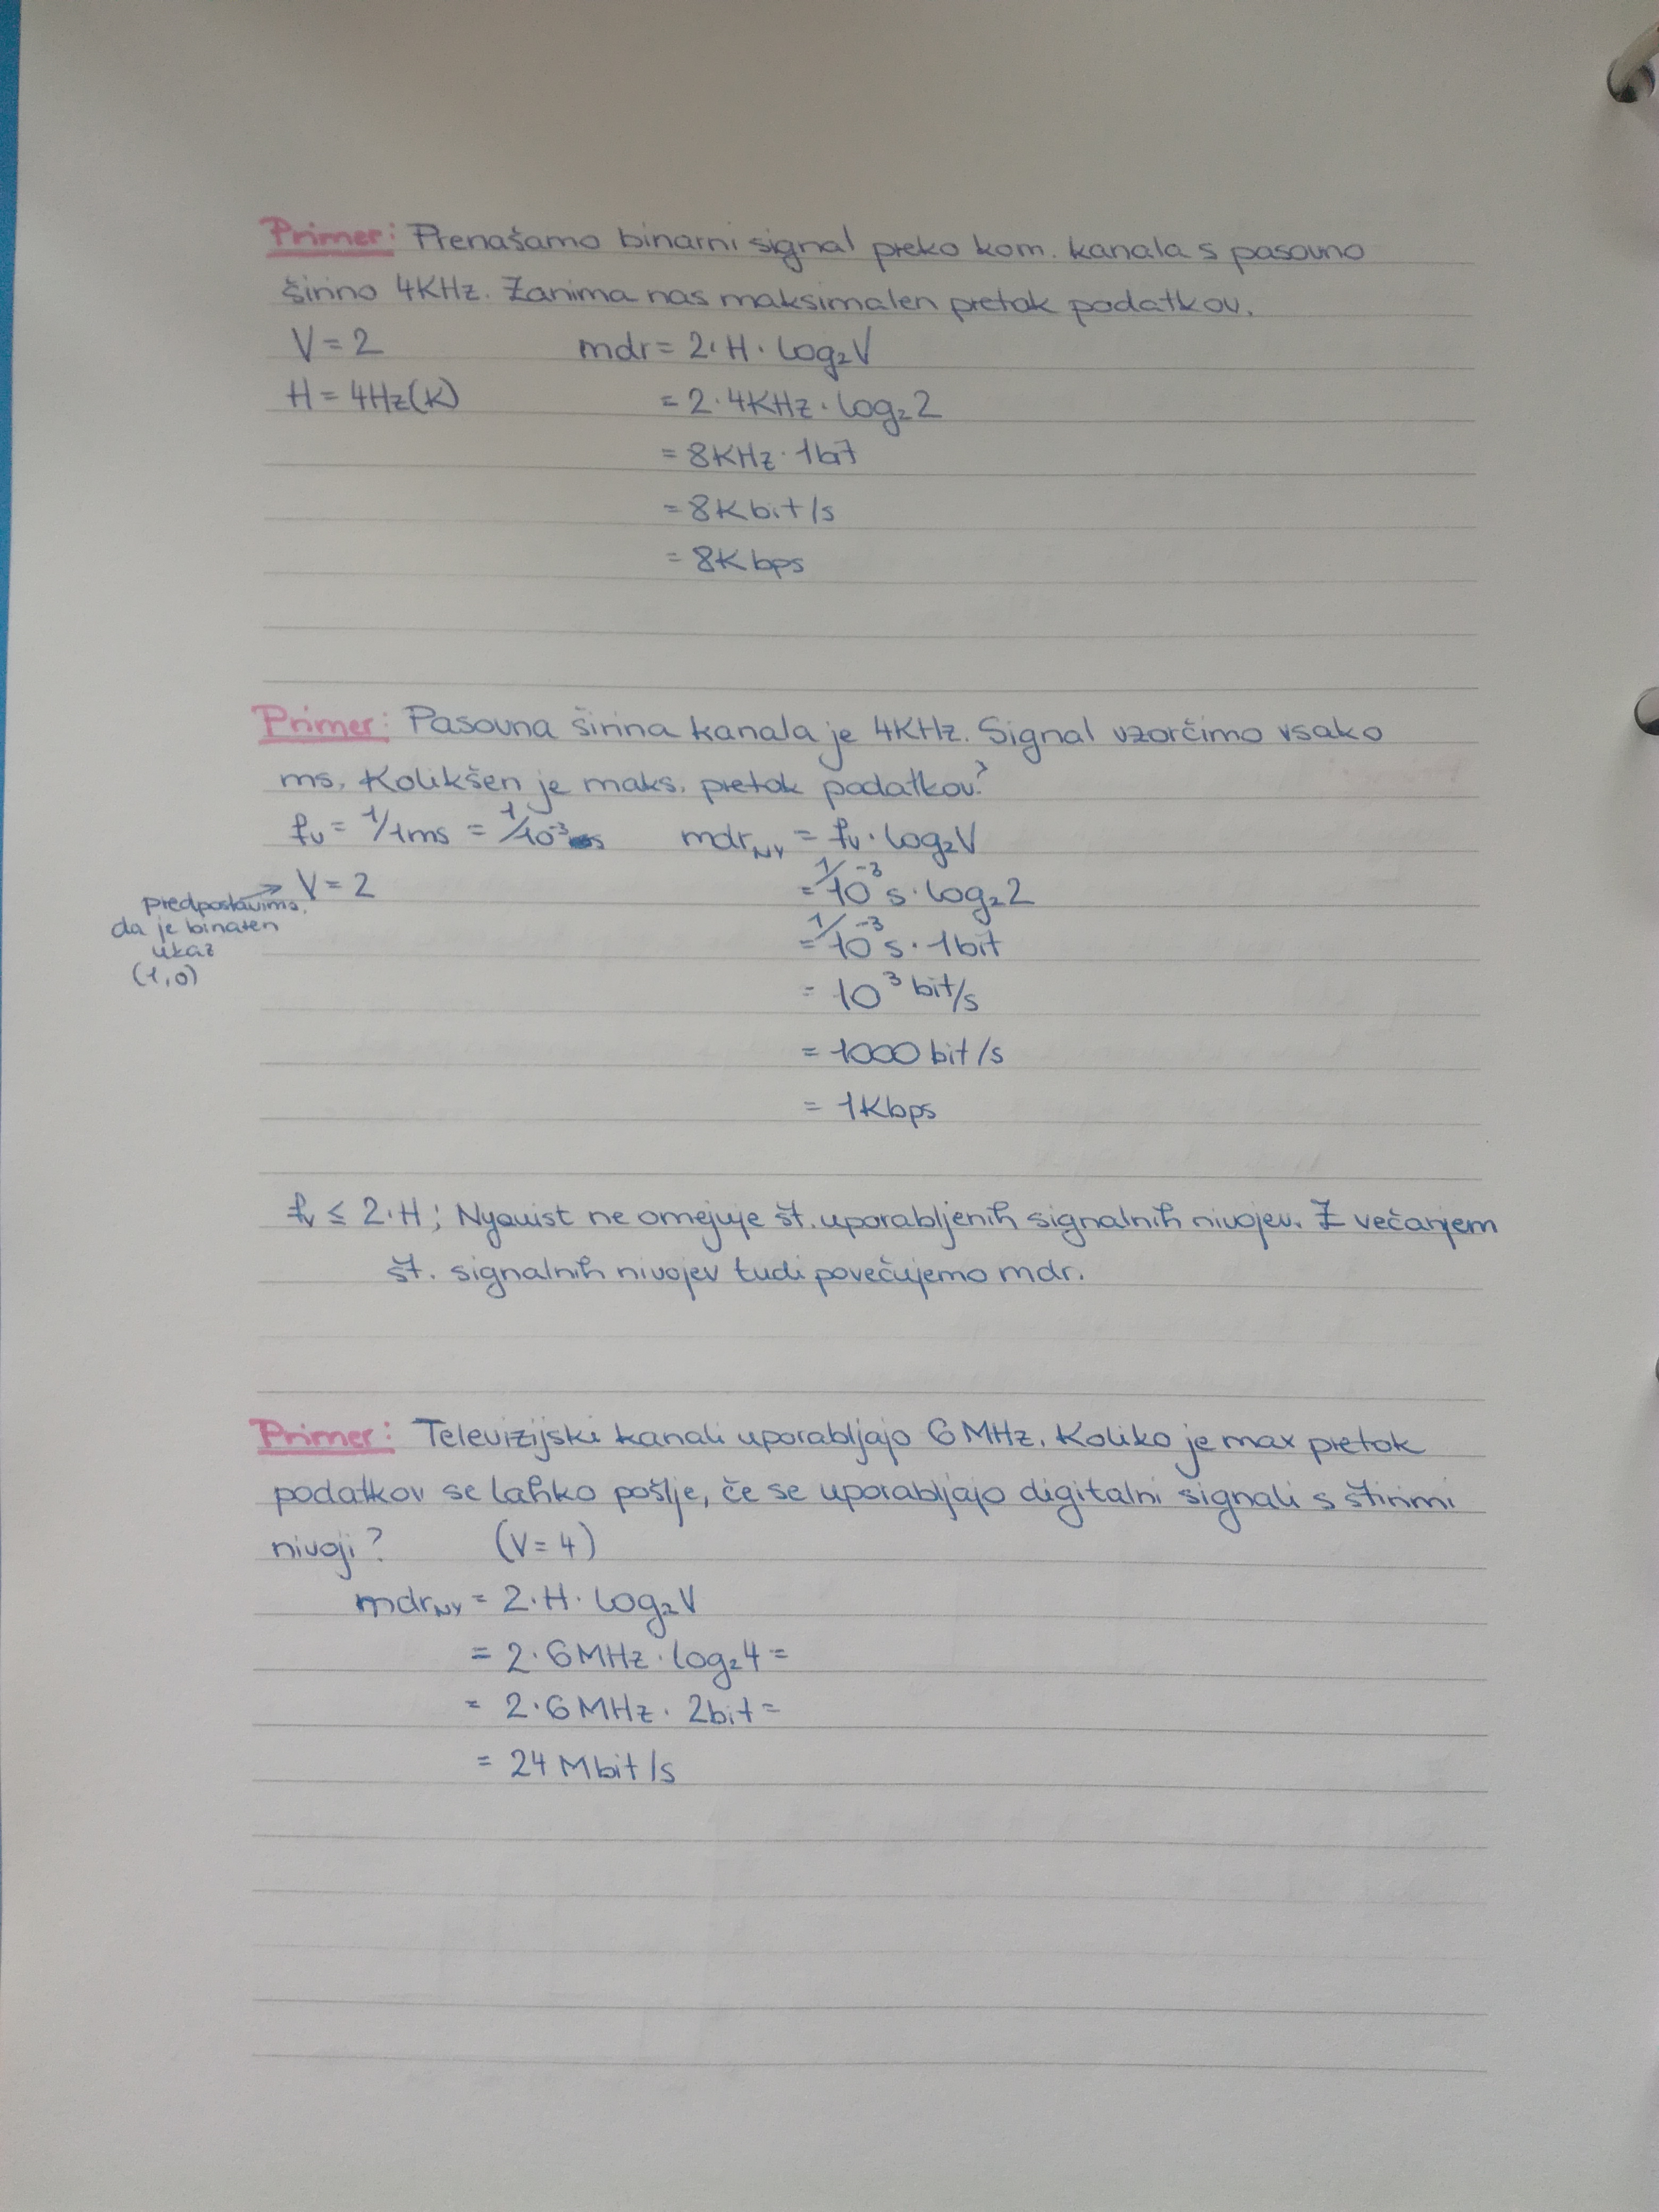 Primer: Prenašamo binarni signal preko kom. kanala s pasovno
širino 4KHz. Zanima nas maksimalen pretok podatkov.
V = 2 mdr = 2·H·log₂V
H = 4Hz(K) = 2·4KHz·log₂2
= 8KHz·1bit
= 8Kbit/s
= 8Kbps
Primer: Pasovna širina kanala je 4KHz. Signal vzorčimo vsako
ms. Kolikšen je maks. pretok podatkov?
fv = 1/1ms = 1/10⁻³s mdrNY = fv·log₂V
V = 2 = 1/10⁻³s·log₂2
predpostavimo,
da je binaren
ukaz
(1,0)
= 1/10⁻³s·1bit
= 10³ bit/s
= 1000 bit/s
= 1Kbps
fv ≤ 2·H; Nyquist ne omejuje št. uporabljenih signalnih nivojev. Z večanjem
št. signalnih nivojev tudi povečujemo mdr.
Primer: Televizijski kanali uporabljajo 6MHz. Koliko je max pretok
podatkov se lahko pošlje, če se uporabljajo digitalni signali s štirimi
nivoji? (V=4)
mdrNY = 2·H·log₂V
= 2·6MHz·log₂4 =
= 2·6MHz·2bit =
= 24 Mbit/s